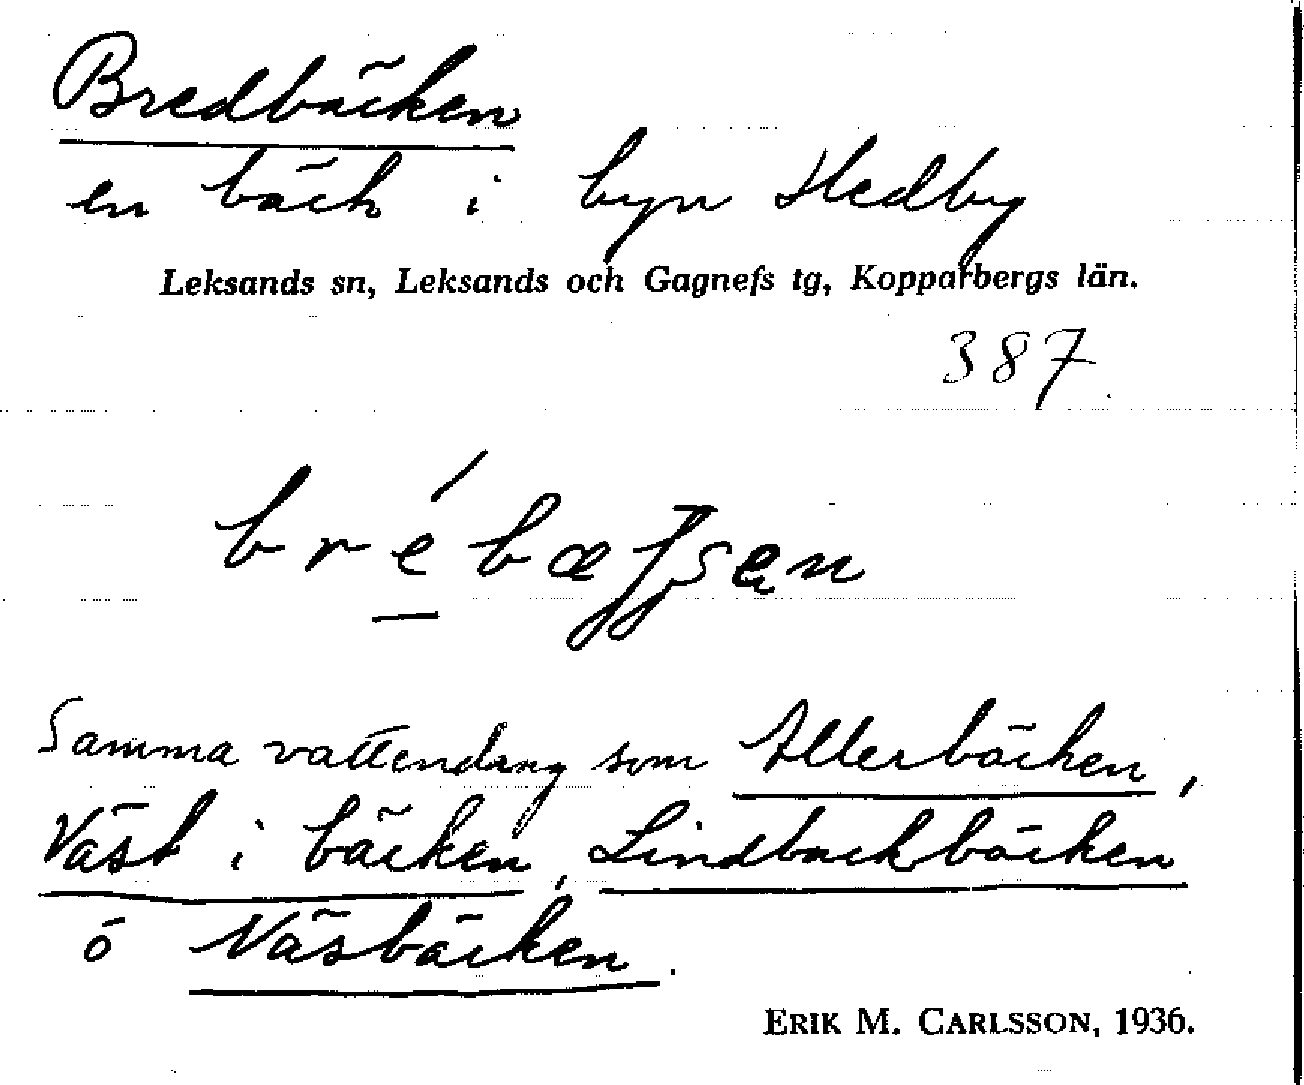 Bredbäcken
en bäck i byn Hedby
Leksands sn, Leksands och Gagnefs tg, Kopparbergs län.
387
Samma vattendrag som Allerbäcken,
Väst i bäcken, Lindbackbäcken
o Näsbäcken.
ERIK M. CARLSSON, 1936.